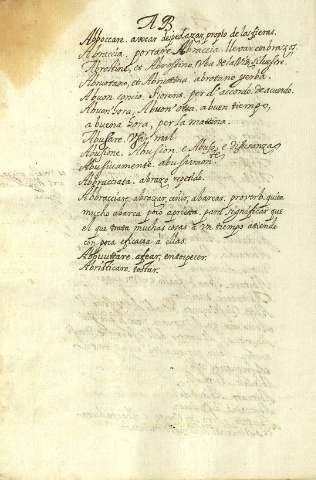 AB
Abboccare. a bocar despedazar, propio de las fieras.
Abraccia, portare Abraccia, llevar en brazos
Abrostine, et Abrostino, Uba de la Vid silvestre.
Abruotano, et Abruotina, abrotano yerba.
A buon conio,
A buon'hora, A buon'otta, a buen tiempo,
a buena hora, per la mattina.
Abusare. Usar mal.
Abusione. Abusion, e Abuso, e differenza
Abusivamente, abusivamente.
Abbracciata, abrazo repetido.
Abbracciar, abrazar, ceñir, abarcar, proverb. quien
mucho abarca poco aprieta, para significar que
el que trata muchas cosas a un tiempo atiende
con poca eficacia a ellas.
Abbruttare. afear, entorpecer.
Abrusticare. tostar.